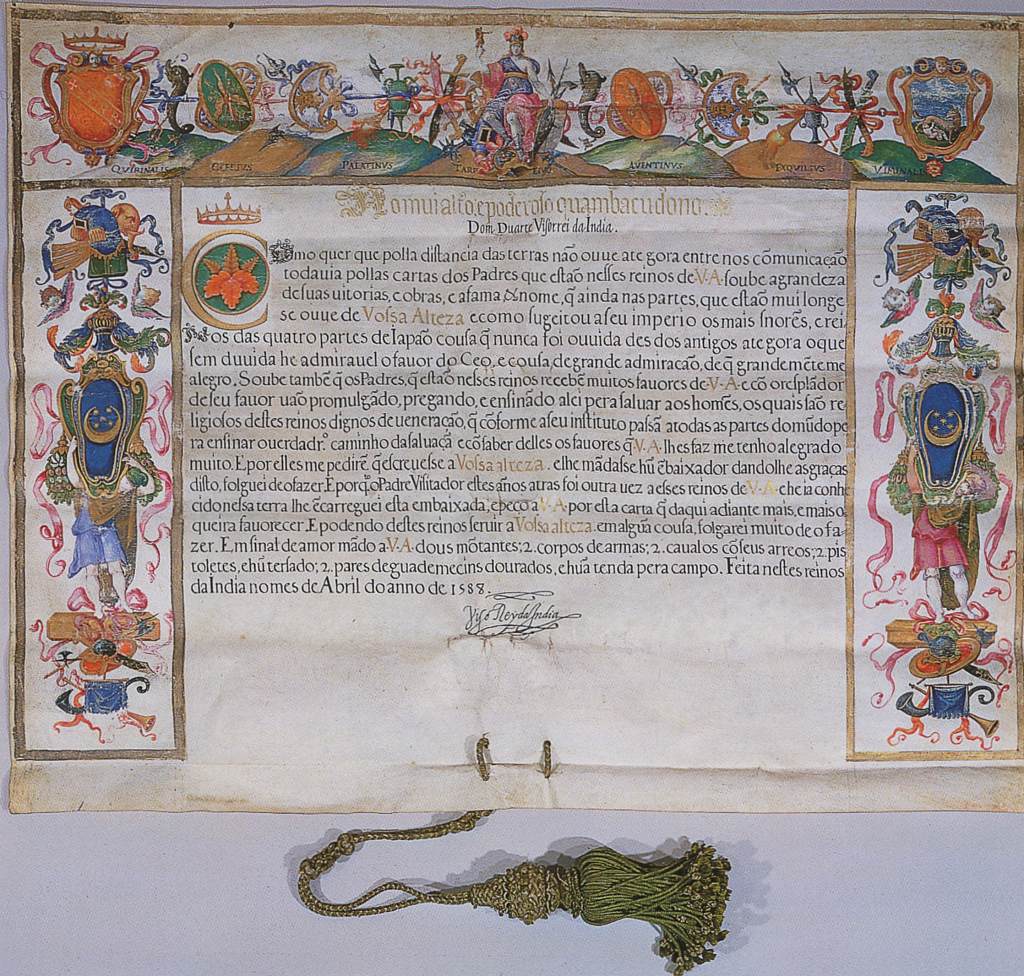 QVIRINALIS CELIVS PALATINVS TARP EIVS AVENTINVS EXQVILIVS VIMINALIS
Ao mui alto, e poderoso quambacudono.
Dom Duarte Visorrei da India.
Como quer que polla distancia das terras não ouue ate gora entre nos cõmunicação
todauia pollas cartas dos Padres que estão nesses reinos de V.A. soube a grandeza
de suas uitorias, e obras, e a fama & nome, q̃ ainda nas partes, que estão mui longe
se ouue de Vossa Alteza e como sugeitou a seu imperio os mais snores, e rei
nos das quatro partes de Iapão cousa q̃ nunca foi ouuida des dos antigos ate gora o que
sem duuida he admirauel o fauor do Ceo, e cousa de grande admiração, de q̃ grandemẽte me
alegro. Soube tambẽ q̃ os Padres, q̃ estão nesses reinos recebẽ muitos fauores de V.A. e cõ o resplãdor
de seu fauor uão promulgãdo, pregando, e ensinãdo a lei pera saluar aos homẽs, os quais são re
ligiosos destes reinos dignos de ueneração, q̃ cõforme a seu instituto passã a todas as partes do mũdo pe
ra ensinar o uerdadrº. caminho da saluaçã e cõ saber delles os fauores q̃ V.A. lhes faz me tenho alegrado
muito. E por elles me pedirẽ q̃ escreuesse a Vossa alteza. e lhe mãdasse hũ ẽbaixador dandolhe as graças
disto, folguei de o fazer. E porq̃ o Padre Visitador estes años atras foi outra uez a esses reinos de V.A. che ia conhe
cido nessa terra lhe ẽcarreguei esta embaixada, e peço a V.A. por esta carta q̃ daqui adiante mais, e mais o
queira fauorecer. E podendo destes reinos seruir a Vossa alteza. em algũa cousa, folgarei muito de o fa
zer. E m sinal de amor mãdo a V.A. dous mõtantes; 2. corpos de armas; 2. caualos cõ seus arreos; 2. pis
toletes, e hũ tersado; 2. pares de guademecins dourados, e hũa tenda pera campo. Feita nestes reinos
da India no mes de Abril do anno de 1588.
Viso Rey da India